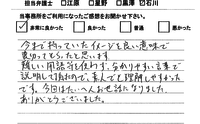 担当弁護士 □江原 □星野 □黒澤 ☑石川
当事務所をご利用になったご感想をお聞かせ下さい。
☑非常に良かった □良かった □普通 □悪かった
今まで持っていたイメージを良い意味で
裏切ってもらったと思います。
難しい用語を使わず、分かりやすい言葉で
説明して頂たので、素人でも理解しやすかった
です。今回はたいへんお世話になりました。
ありがとうございました。